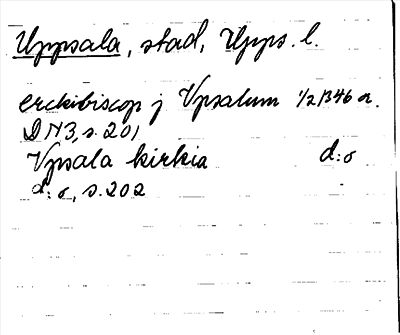 Uppsala, stad, Upps. l.
erckibiscop j Vpsalum 1/2 1346 a.
DN3, s. 201
Vpsala kirkia d:o
d:o, s. 202